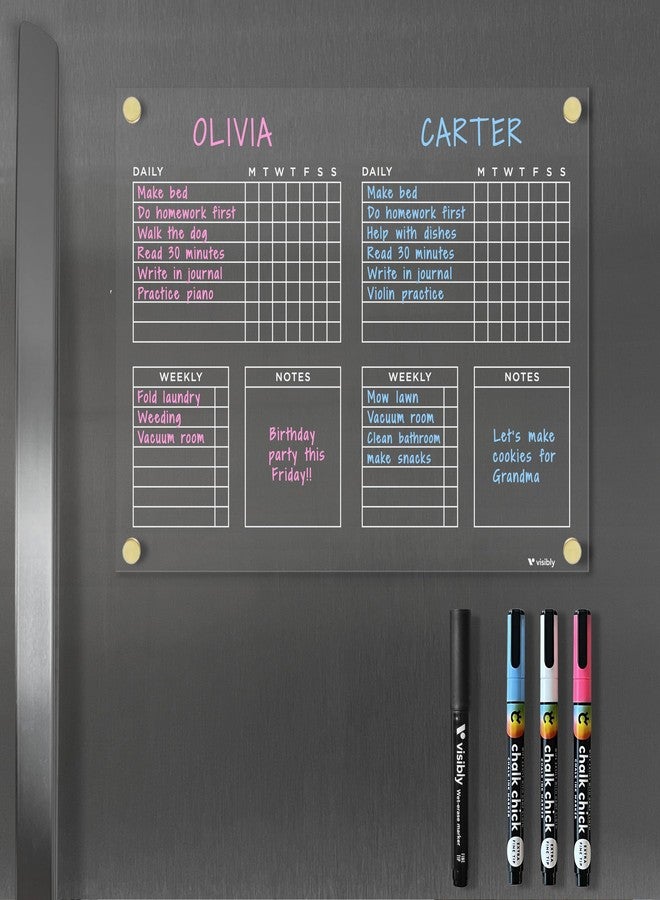 OLIVIA
CARTER
DAILY M T W T F S S
Make bed
Do homework first
Walk the dog
Read 30 minutes
Write in journal
Practice piano
DAILY M T W T F S S
Make bed
Do homework first
Help with dishes
Read 30 minutes
Write in journal
Violin practice
WEEKLY
Fold laundry
Weeding
Vacuum room
NOTES
Birthday
party this
Friday!!
WEEKLY
Mow lawn
Vacuum room
Clean bathroom
make snacks
NOTES
Let's make
cookies for
Grandma
visibly
visibly Wet-erase marker
chalk chick
EXTRA
FINE TIP
chalk chick
EXTRA
FINE TIP
chalk chick
EXTRA
FINE TIP